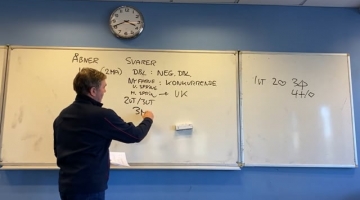 ÅBNER SVARER
(2MA) DBL : NEG. DBL
NY FARVE : KONKURRENCE
U. SPRING
M. SPRING → UK
2UT/3UT
3M
1UT 2♡ 3♣
4♣/♢